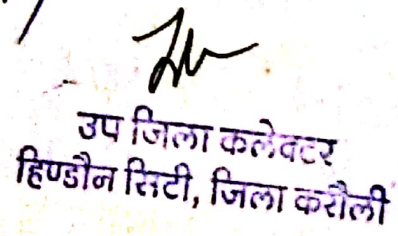 उप जिला कलेक्टर
हिण्डौन सिटी, जिला करौली